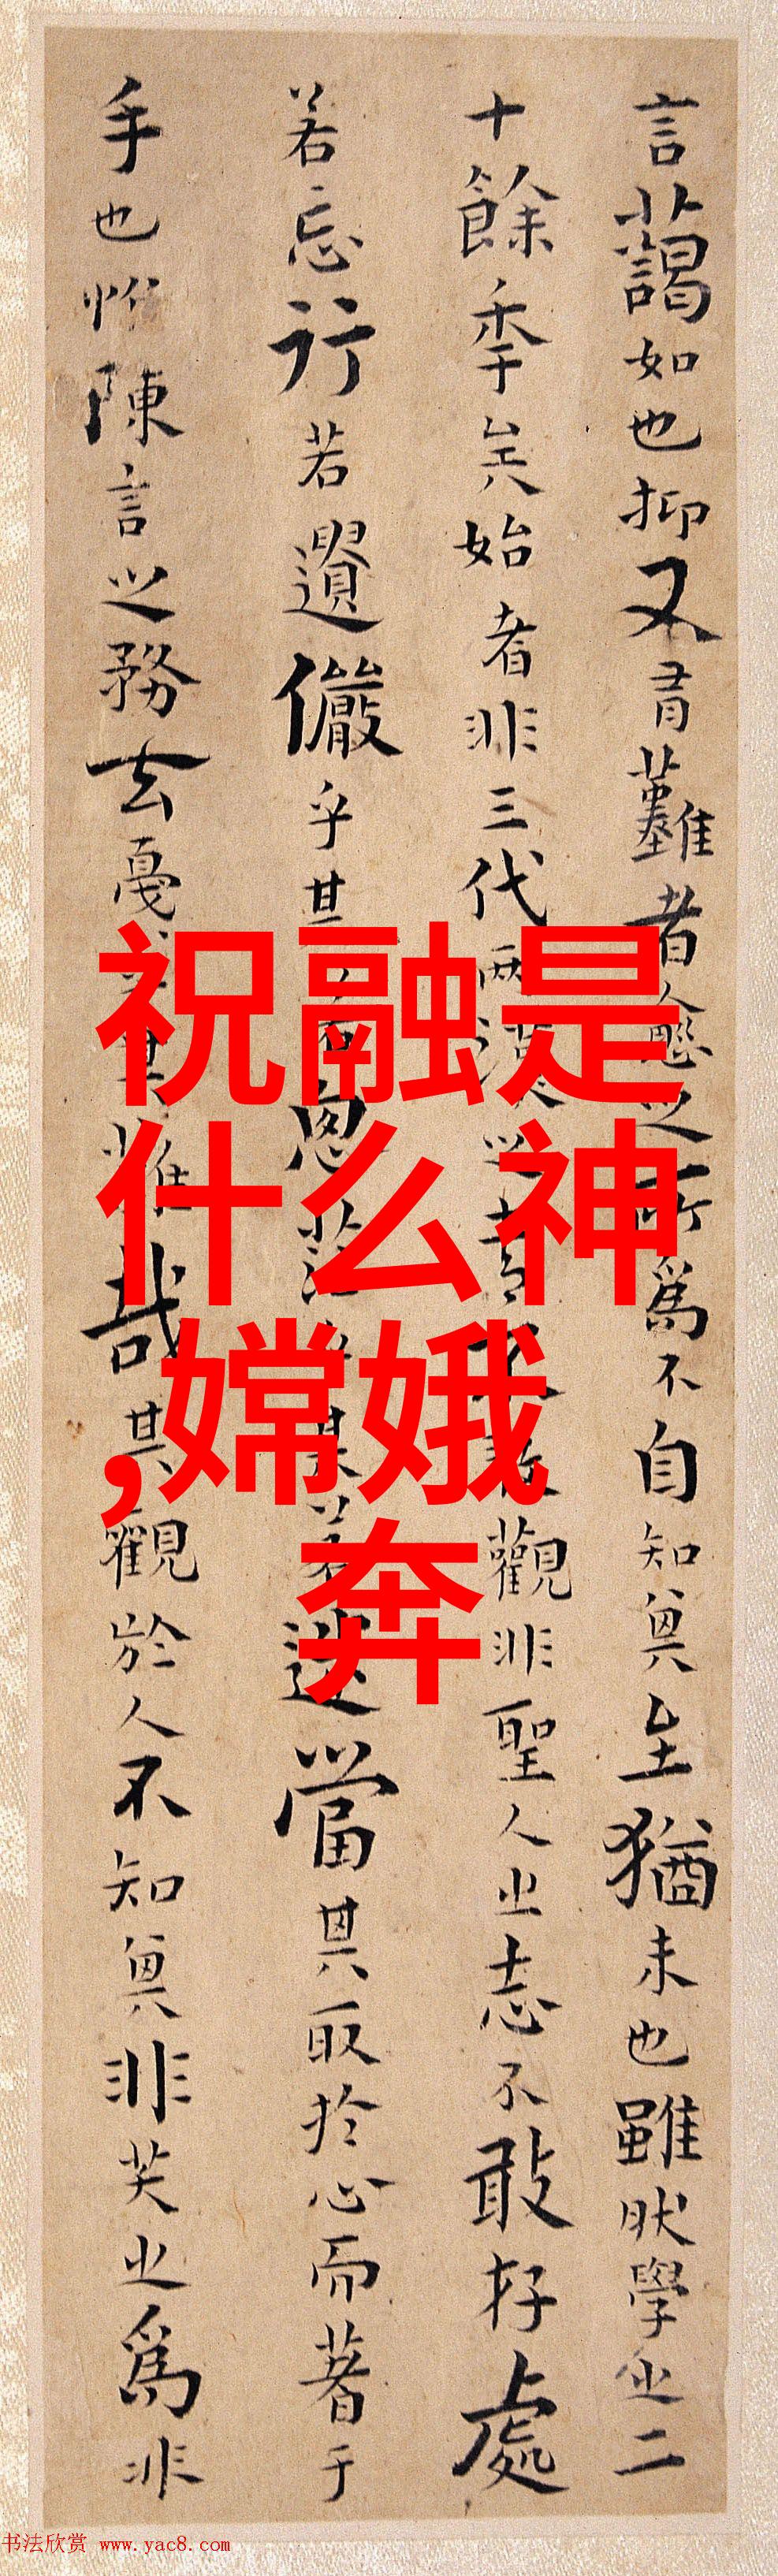 言藹如也抑又有難者愈之所為不自知其至猶未也雖然學之二
十餘年矣始者非三代兩漢之書不敢觀非聖人之志不敢存處
若忘行若遺儼乎其若思茫乎其若迷當其取於心而著于
手也惟陳言之務去戛戛乎其難哉其觀於人不知其非笑之為非
祝融是
什么神
,嫦娥
奔
书法欣赏 www.yac8.com